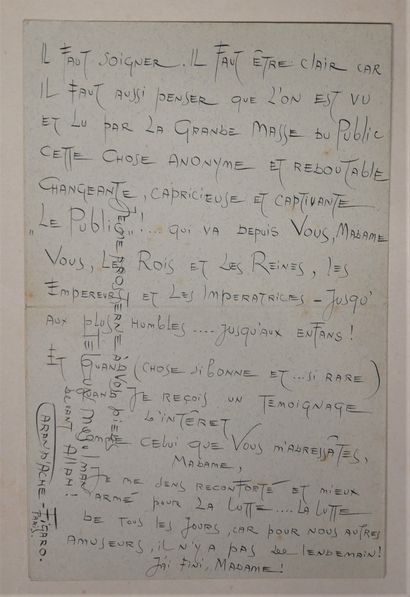 Il faut soigner. Il faut être clair car
il faut aussi penser que l'on est vu
et lu par la Grande Masse du Public
cette chose anonyme et redoutable
changeante, capricieuse et captivante
"Le Public"!... qui va depuis Vous, Madame
Vous, les Rois et les Reines, les
Empereurs et les Imperatrices - jusqu'
aux plus humbles.... jusqu'aux enfans!
Et quand (chose si bonne et...si rare)
quand je reçois un témoignage
d'intérêt
comme celui que Vous m'adressâtes,
Madame,
je me sens reconforté et mieux
armé pour la lutte.... la lutte
de tous les jours, car pour nous autres
amuseurs, il n'y a pas de lendemain!
J'ai fini, Madame!
Je me prosterne à Vos pieds
Musulman
devant Allah!
Caran d'Ache - Figaro.
Paris.